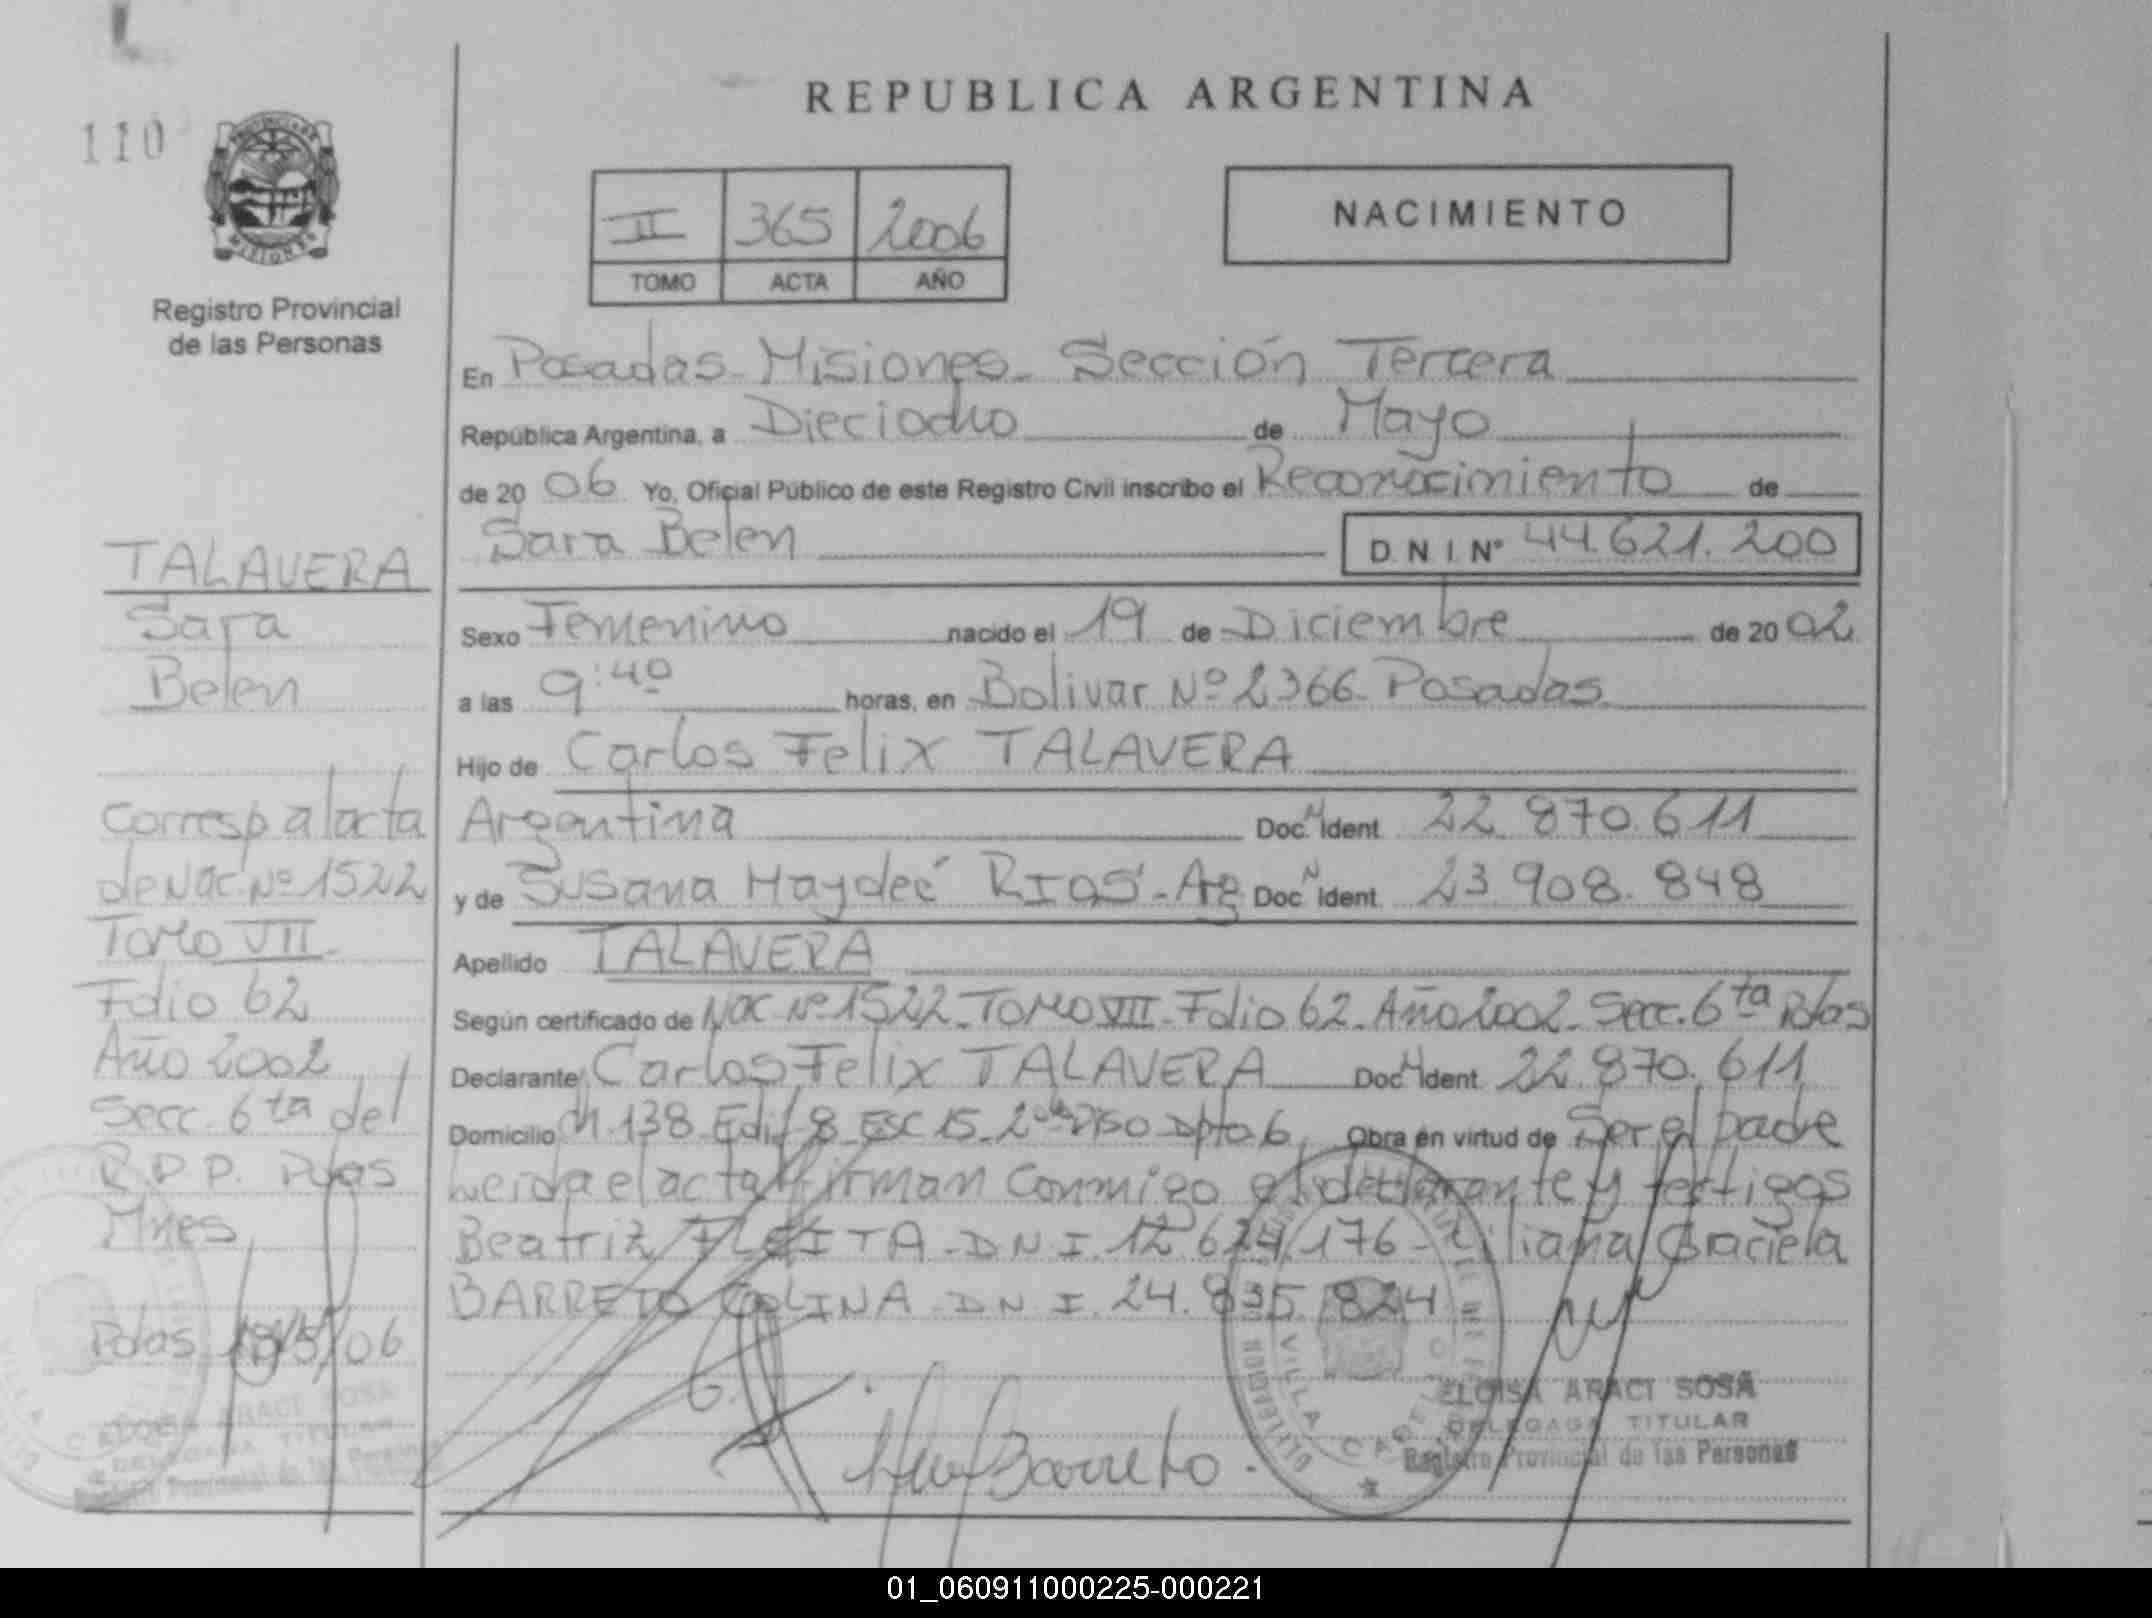 REPUBLICA ARGENTINA
110
II 365 2006
TOMO ACTA AÑO
NACIMIENTO
PROVINCIA DE
MISIONES
Registro Provincial
de las Personas
En Posadas - Misiones - Sección Tercera
República Argentina, a Dieciocho de Mayo
de 20 06 Yo, Oficial Público de este Registro Civil inscribo el Reconocimiento de
Sara Belen D.N.I. Nº 44.621.200
TALAVERA
Sara
Belen
Sexo Femenino nacido el 19 de Diciembre de 20 02
a las 9:40 horas, en Bolivar Nº 2366 - Posadas
Hijo de Carlos Felix TALAVERA
Argentina Doc. N Ident 22.870.611
y de Susana Haydeé RIOS - Arg Doc. N Ident 23.908.848
Apellido TALAVERA
Según certificado de Nac. Nº 1522 - Tomo VII - Folio 62 - Año 2002 - Secc. 6ta Pdas
Declarante Carlos Felix TALAVERA Doc N Ident 22.870.611
Domicilio Ch 138 Edif 8 ESC 15 - 2do PISO Dpto 6 Obra en virtud de Ser el padre
Leida el acta firman conmigo el declarante y testigos
Beatriz FLEITA - D N I. 12.624.176 - Liliana Graciela
BARRETO COLINA - D N I. 24.835.824
Corresp a l acta
de Nac. Nº 1522
Tomo VII
Folio 62
Año 2002
Secc. 6ta del
R.P.P. Pdas
Mnes
Pdas 18/5/06
Barreto
VILLA CABELLO
ELOISA ARACI SOSA
DELEGADA TITULAR
Registro Provincial de las Personas
ELOISA ARACI SOSA
DELEGADA TITULAR
Registro Provincial de las Personas
01_060911000225-000221